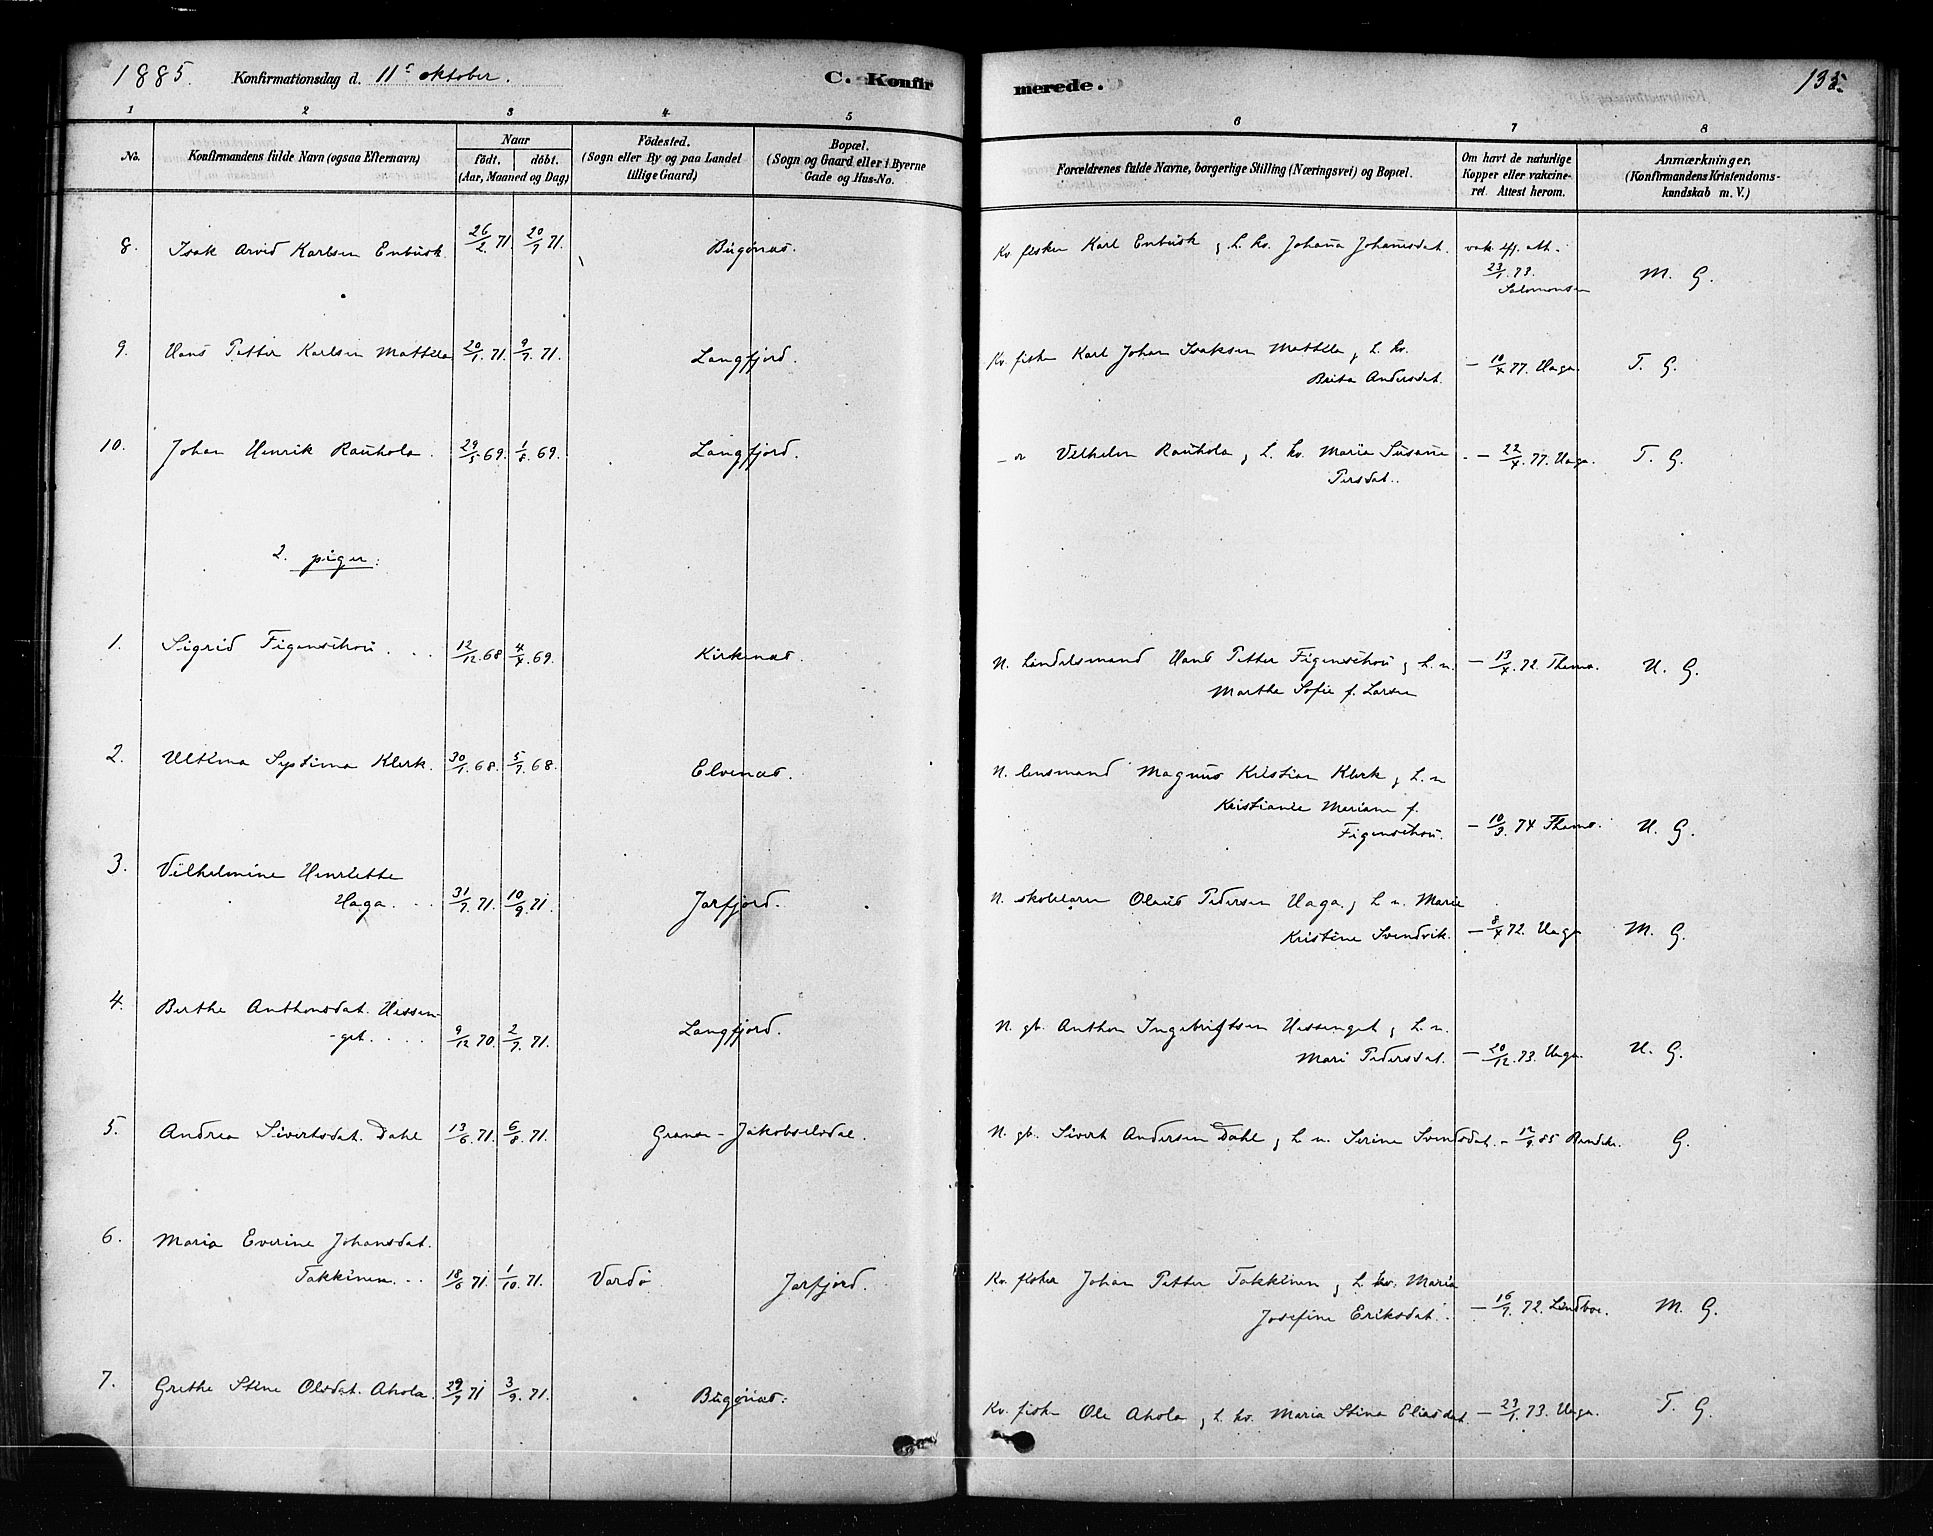 1885. Konfirmationsdag d. 11te oktober. C. Konfirmerede. 135.
1 2 3 4 5 6 7 8
No. Konfirmandens fulde Navn (ogsaa Efternavn) Naar födt. döbt. (Aar, Maaned og Dag) Födested. (Sogn eller By og paa Landet tillige Gaard) Bopæl. (Sogn og Gaard eller i Byerne Gade og Hus-No. Forældrenes fulde Navne, borgerlige Stilling (Næringsvei) og Bopæl. Om havt de naturlige Kopper eller vakcineret. Attest herom. Anmærkninger. (Konfirmandens Kristendomskundskab m. V.)
8. Isak Arvid Karlsen Enbusk. 26/2 71. 20/7 71. Bugönæs. Kv. fisker Karl Enbusk & h. kv. Johana Johansdat. vak. 23/1 73. Salomonsen M. G.
9. Hans Petter Karlsen Mattila 20/1 71. 9/7 71. Langfjord. Kv. fisker Karl Johan Isaksen Mattila & h. kv.
Brita Andersdat. – 10/4 77. Haga. T. G.
10. Johan Henrik Rauhola. 29/5 69. 1/8 69. Langfjord. Vilhelm Rauhola & h. kv. Maria Susane
Persdat. – 22/4 77. Haga. T. G.
2. piger:
1. Sigrid Figenschou. 12/12 68 4/4 69. Kirkenæs. N. Lendsmand Hans Petter Figenschou & h. n.
Marthe Sofie f. Larsen – 13/4 72. Thams. U. G.
2. Ultima Systima Klerk. 30/1 68. 5/7 68. Elvenæs. N. lensmand Magnus Kristian Klerk & h. n
Kristiane Mariane f.
Figenschou. – 10/3 74 Thams. U. G.
3. Vilhelmine Henriette
Haga. 31/7 71. 10/9 71. Jarfjord. N. skolelærer Olaus Pedersen Haga & h. n. Marie
Kristine Svendvik. – 8/4 72. Haga M. G.
4. Berthe Anthonsdat. Hessen-
-get. 9/12 70. 2/7 71. Langfjord. N. gb. Anthon Ingebrigtsen Hessenget & h. n.
Mari Pedersdat. – 20/12 73. Haga. U. G.
5. Andrea Sivertsdat. Dahl 13/6 71. 6/8 71. Grense-Jakobselvdal. N. gb. Sivert Andersen Dahl & h. n. Serine Svendsdat. – 12/9 85 G.
6. Maria Everine Johansdat.
Takkinen. 18/6 71. 1/10 71. Vardö Jarfjord. Kv. fisker Johan Petter Takkinen & h. kv. Maria
Josefine Eriksdat. – 16/7 72. Lindboe. M. G.
7. Grethe Stine Olsdat. Ahola. 29/7 71 3/9 71. Bugönæs. Kv. fisker Ole Ahola & h. kv. Maria Stina Eliasdat. – 23/1 73. Haga. T. G.